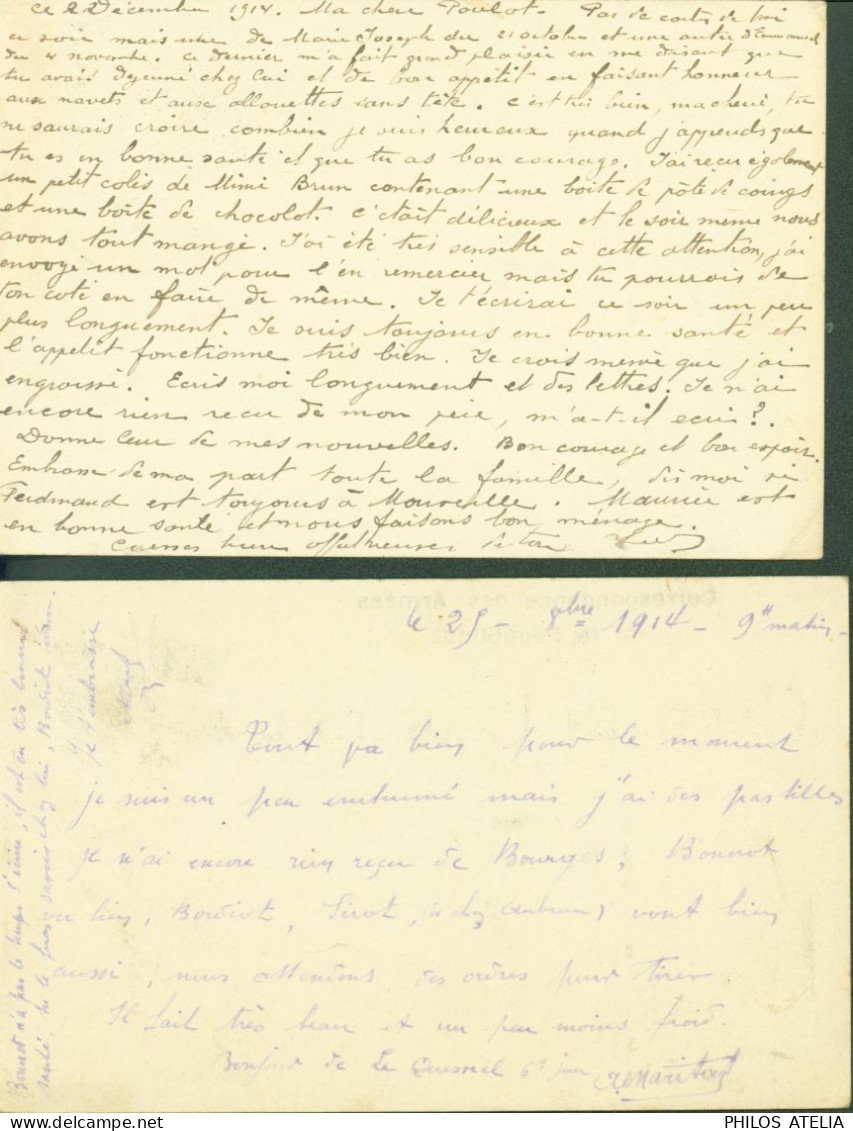 ce 2 Décembre 1914. Ma chere Poulot. Pas de cartes de toi
ce soir mais une de Marie Joseph du 21 octobre et une autre d'Emmanuel
du 4 novembre. Ce dernier m'a fait grand plaisir en me disant que
tu avais dejeuné chez lui et de bon appétit en faisant honneur
aux navets et aux allouettes sans tête. C'est très bien, ma cherie, tu
ne saurais croire combien je suis heureux quand j'apprends que
tu es en bonne santé et que tu as bon courage. J'ai recu également
un petit colis de Mimi Brun contenant une boîte de pâte de coings
et une boîte de chocolat. C'était délicieux et le soir même nous
avons tout mangé. J'ai été très sensible à cette attention, j'ai
envoyé un mot pour l'en remercier mais tu pourrois de
ton coté en faire de même. Je t'écrirai ce soir un peu
plus longuement. Je suis toujours en bonne santé et
l'appetit fonctionne très bien. Je crois meme que j'ai
engraissé. Ecris moi longuement et des lettres. Je n'ai
encore rien recu de mon père, m'a-t-il ecrit?.
Donne leur de mes nouvelles. Bon courage et bon espoir.
Embrasse de ma part toute la famille, dis moi si
Ferdinand est toujours à Marseille. Maurice est
en bonne santé et nous faisons bon ménage.
Caresses bien affectueuses de ton
Correspondance des Armées
le 25 - 8bre 1914 - 9h matin -
Tout va bien pour le moment
je suis un peu enrhumé mais j'ai des pastilles
je n'ai encore rien reçu de Bourges, Bonnot
va bien, Bordiot, Sirot, (de chez Aubrun) vont bien
aussi, nous attendons des ordres pour tirer.
Il fait très beau et un peu moins froid.
Bonjour de Le Quesnel
Je t'embrasse
Bonnot n'a pas le temps d'écrire, il est en très bonne
santé. tu le feras savoir chez lui, Bordiot idem.
PHILOS ATELIA